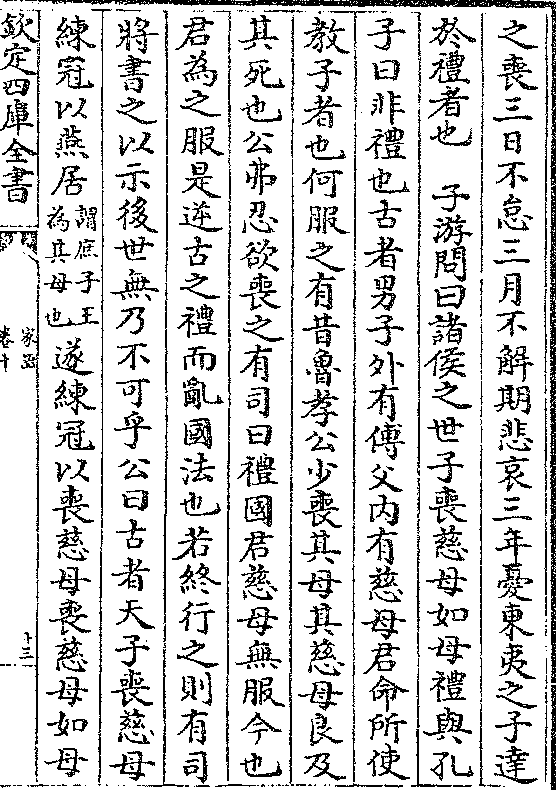 之喪三日不怠三月不解期悲哀三年憂東夷之子達
於禮者也　子游問曰諸侯之世子喪慈母如母禮與孔
子曰非禮也古者男子外有傅父内有慈母君命所使
教子者也何服之有昔魯孝公少喪其母其慈母良及
其死也公弗忍欲喪之有司曰禮國君慈母無服今也
君為之服是逆古之禮而亂國法也若終行之則有司
將書之以示後世無乃不可乎公曰古者天子喪慈母
練冠以燕居謂庶子王為其母也遂練冠以喪慈母喪慈母如母
欽定四庫全書
家語
卷十
十三